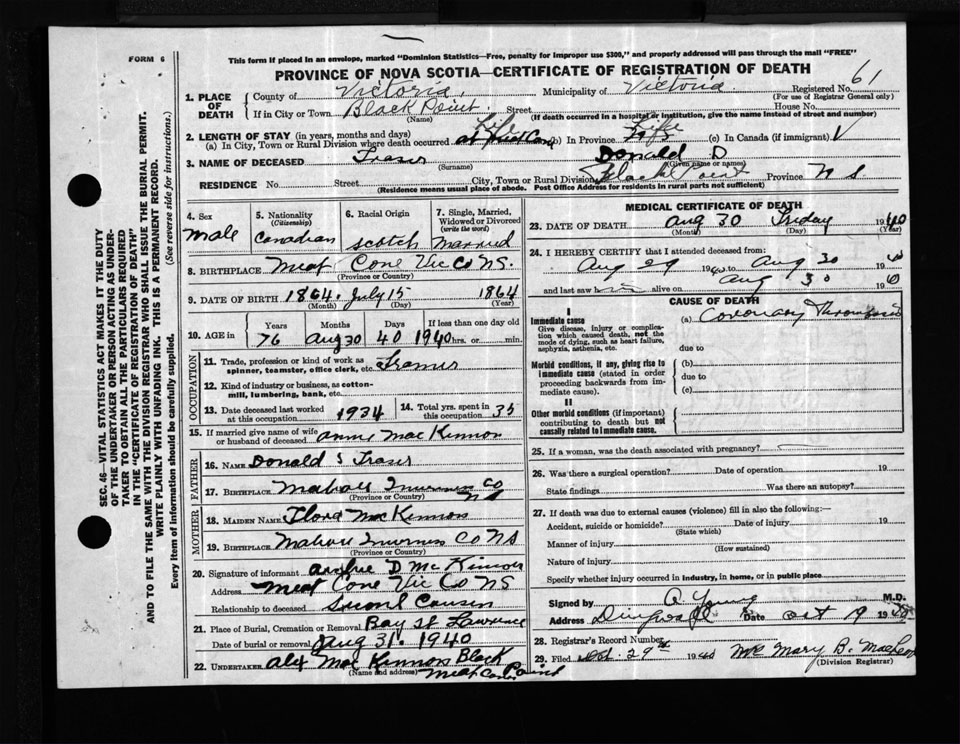 FORM 6
This form if placed in an envelope, marked "Dominion Statistics—Free, penalty for improper use $300," and properly addressed will pass through the mail "FREE"
PROVINCE OF NOVA SCOTIA—CERTIFICATE OF REGISTRATION OF DEATH
SEC. 46—VITAL STATISTICS ACT MAKES IT THE DUTY
OF THE UNDERTAKER OR PERSON ACTING AS UNDER-
TAKER TO OBTAIN ALL THE PARTICULARS REQUIRED
IN THE "CERTIFICATE OF REGISTRATION OF DEATH"
AND TO FILE THE SAME WITH THE DIVISION REGISTRAR WHO SHALL ISSUE THE BURIAL PERMIT.
WRITE PLAINLY WITH UNFADING INK. THIS IS A PERMANENT RECORD.
Every item of information should be carefully supplied. (See reverse side for instructions.)
1. PLACE OF DEATH
County of Victoria, Municipality of Victoria. Registered No. 61
(For use of Registrar General only)
If in City or Town Black Point. Street House No.
(Name) (If death occurred in a hospital or institution, give the name instead of street and number)
2. LENGTH OF STAY (in years, months and days)
(a) In City, Town or Rural Division where death occurred Life (b) In Province Life (c) In Canada (if immigrant)
3. NAME OF DECEASED Fraser Donald D
(Surname) (Given name or names)
RESIDENCE No. Street City, Town or Rural Division Black Point Province N S
(Residence means usual place of abode. Post Office Address for residents in rural parts not sufficient)
4. Sex
Male
5. Nationality
(Citizenship)
Canadian
6. Racial Origin
Scotch
7. Single, Married,
Widowed or Divorced
(write the word)
Married
8. BIRTHPLACE Meat Cove Vic Co NS.
(Province or Country)
9. DATE OF BIRTH 1864. July 15 1864
(Month) (Day) (Year)
10. AGE in Years Months Days If less than one day old
76 Aug 30 40 1940 hrs. or min.
OCCUPATION
11. Trade, profession or kind of work as
spinner, teamster, office clerk, etc.
12. Kind of industry or business, as cotton-
mill, lumbering, bank, etc.
13. Date deceased last worked
at this occupation 1934
14. Total yrs. spent in
this occupation 35
15. If married give name of wife
or husband of deceased Annie Mac Kinnon
FATHER
16. NAME Donald S Fraser
17. BIRTHPLACE Mabou Inverness Co
N S
(Province or Country)
MOTHER
18. MAIDEN NAME Flora Mac Kinnon
19. BIRTHPLACE Mabou Inverness Co NS
(Province or Country)
20. Signature of informant Archie D McKinnon
Address Meat Cove Vic Co NS
Relationship to deceased Second Cousin
21. Place of Burial, Cremation or Removal Bay St Lawrence
Date of burial or removal Aug 31. 1940
22. UNDERTAKER Alex Mac Kinnon Black Point
(Name and address) Meat Cove
MEDICAL CERTIFICATE OF DEATH
23. DATE OF DEATH Aug 30 Friday 1940
(Month) (Day) (Year)
24. I HEREBY CERTIFY that I attended deceased from:
Aug 29 1940 to Aug 30 40
and last saw h im alive on Aug 30 40
CAUSE OF DEATH
I
Immediate cause
Give disease, injury or complica-
tion which caused death, not the
mode of dying, such as heart failure,
asphyxia, asthenia, etc.
(a) Coronary Thrombosis
due to
Morbid conditions, if any, giving rise to
immediate cause (stated in order
proceeding backwards from im-
mediate cause).
(b)
due to
(c)
II
Other morbid conditions (if important)
contributing to death but not
causally related to immediate cause.
25. If a woman, was the death associated with pregnancy?
26. Was there a surgical operation? Date of operation 19
State findings Was there an autopsy?
27. If death was due to external causes (violence) fill in also the following:—
Accident, suicide or homicide? Date of injury 19
(State which)
Manner of injury
(How sustained)
Nature of injury
Specify whether injury occurred in industry, in home, or in public place
Signed by Young M.D.
Address Dingwall Date Oct 9 1940
28. Registrar's Record Number
29. Filed Oct. 29th 1940 Mrs Mary B. MacLeod
(Division Registrar)